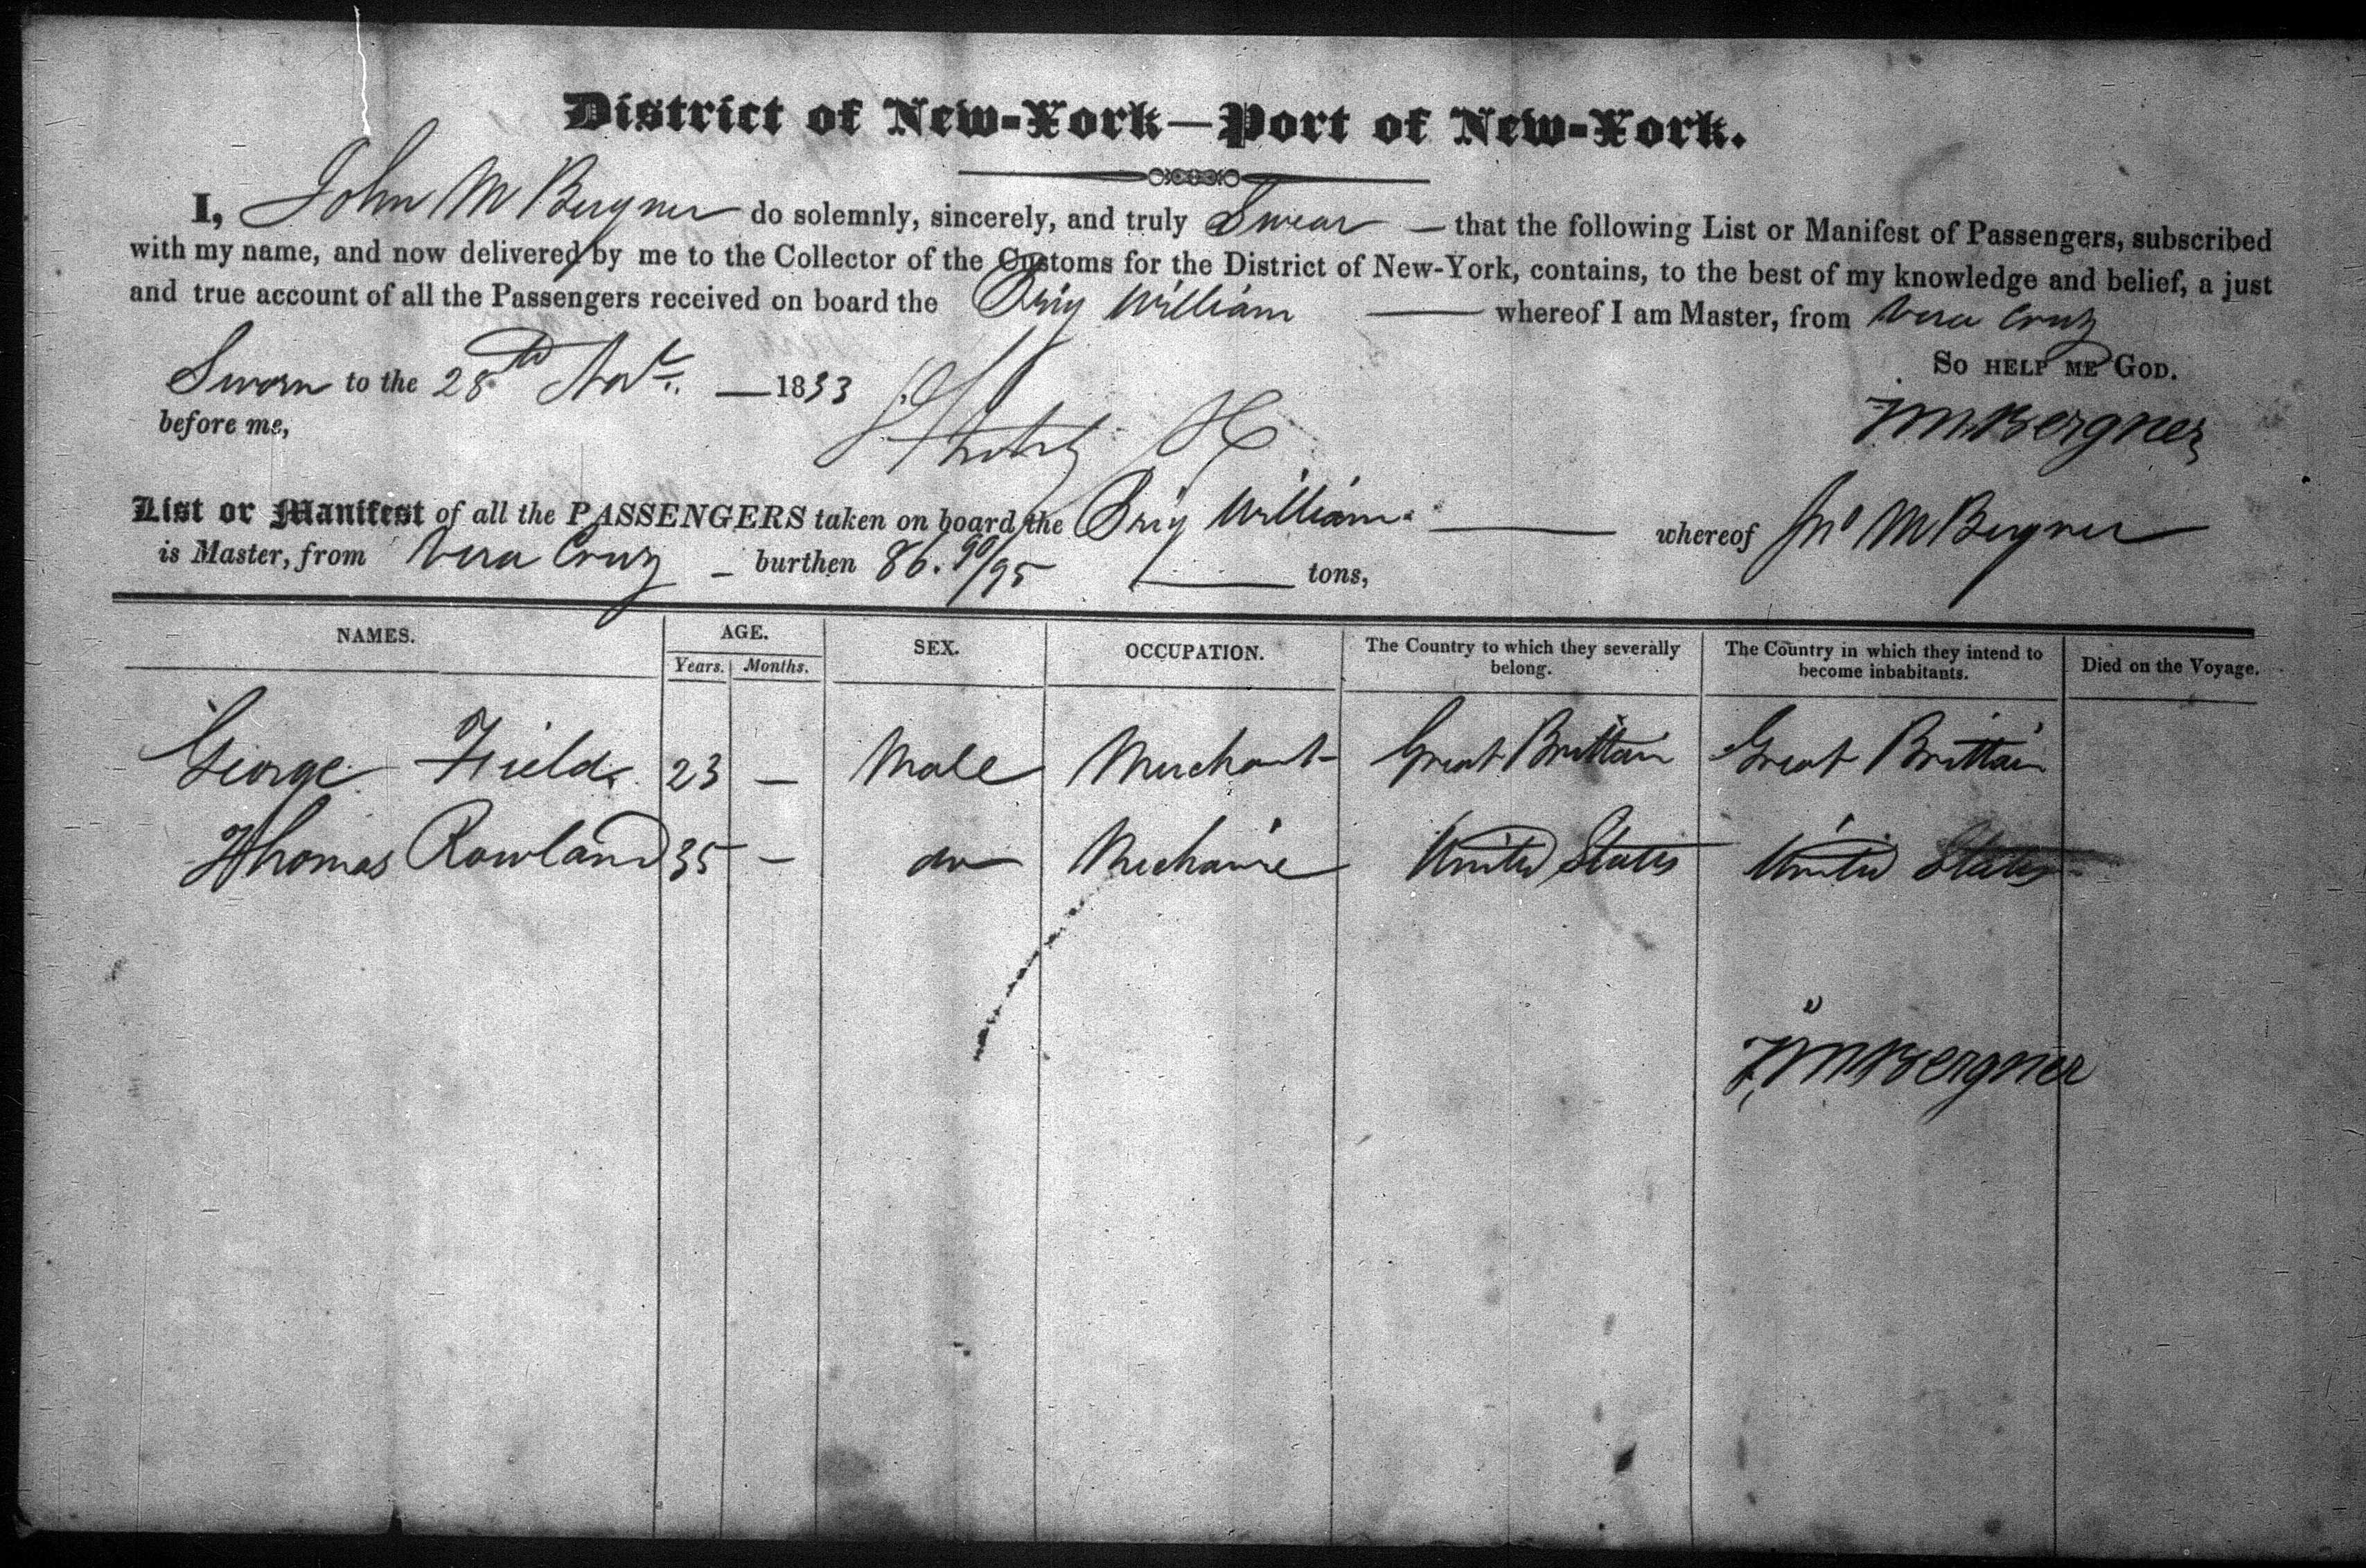 District of New-York—Port of New-York.
I, John M Bergner do solemnly, sincerely, and truly Swear — that the following List or Manifest of Passengers, subscribed
with my name, and now delivered by me to the Collector of the Customs for the District of New-York, contains, to the best of my knowledge and belief, a just
and true account of all the Passengers received on board the Brig William — whereof I am Master, from Vera Cruz
So help me God.
Sworn to the 28th Novr. — 1833
before me,
JM Bergner
List or Manifest of all the PASSENGERS taken on board the Brig William — whereof Jno M Bergner
is Master, from Vera Cruz – burthen 86. 90/95 — tons,
NAMES. AGE. SEX. OCCUPATION. The Country to which they severally belong. The Country in which they intend to become inhabitants. Died on the Voyage.
Years. Months.
George Fields 23 — Male Merchant Great Brittain Great Brittain
Thomas Rowland 35 — do Mechanic United States United States
JM Bergner